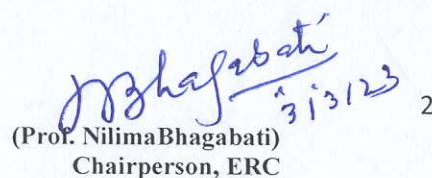 NBhagabati
3/3/23
2
(Prof. NilimaBhagabati)
Chairperson, ERC